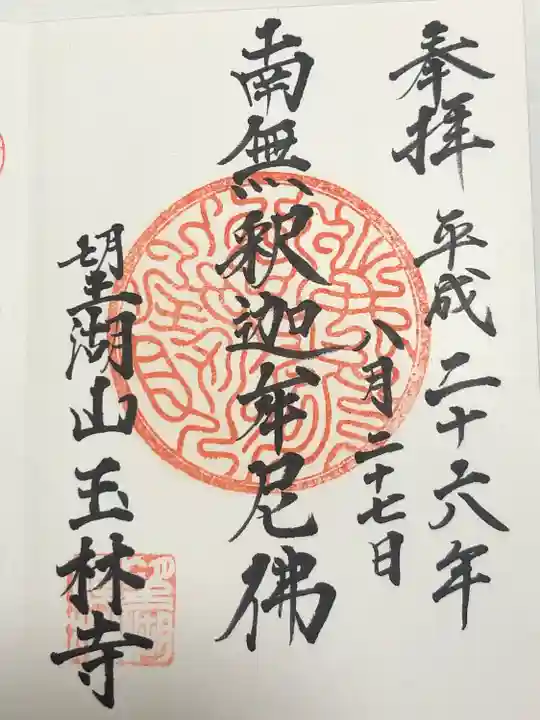 奉拝 平成二十六年
八月二十七日
南無釈迦牟尼佛
望湖山玉林寺